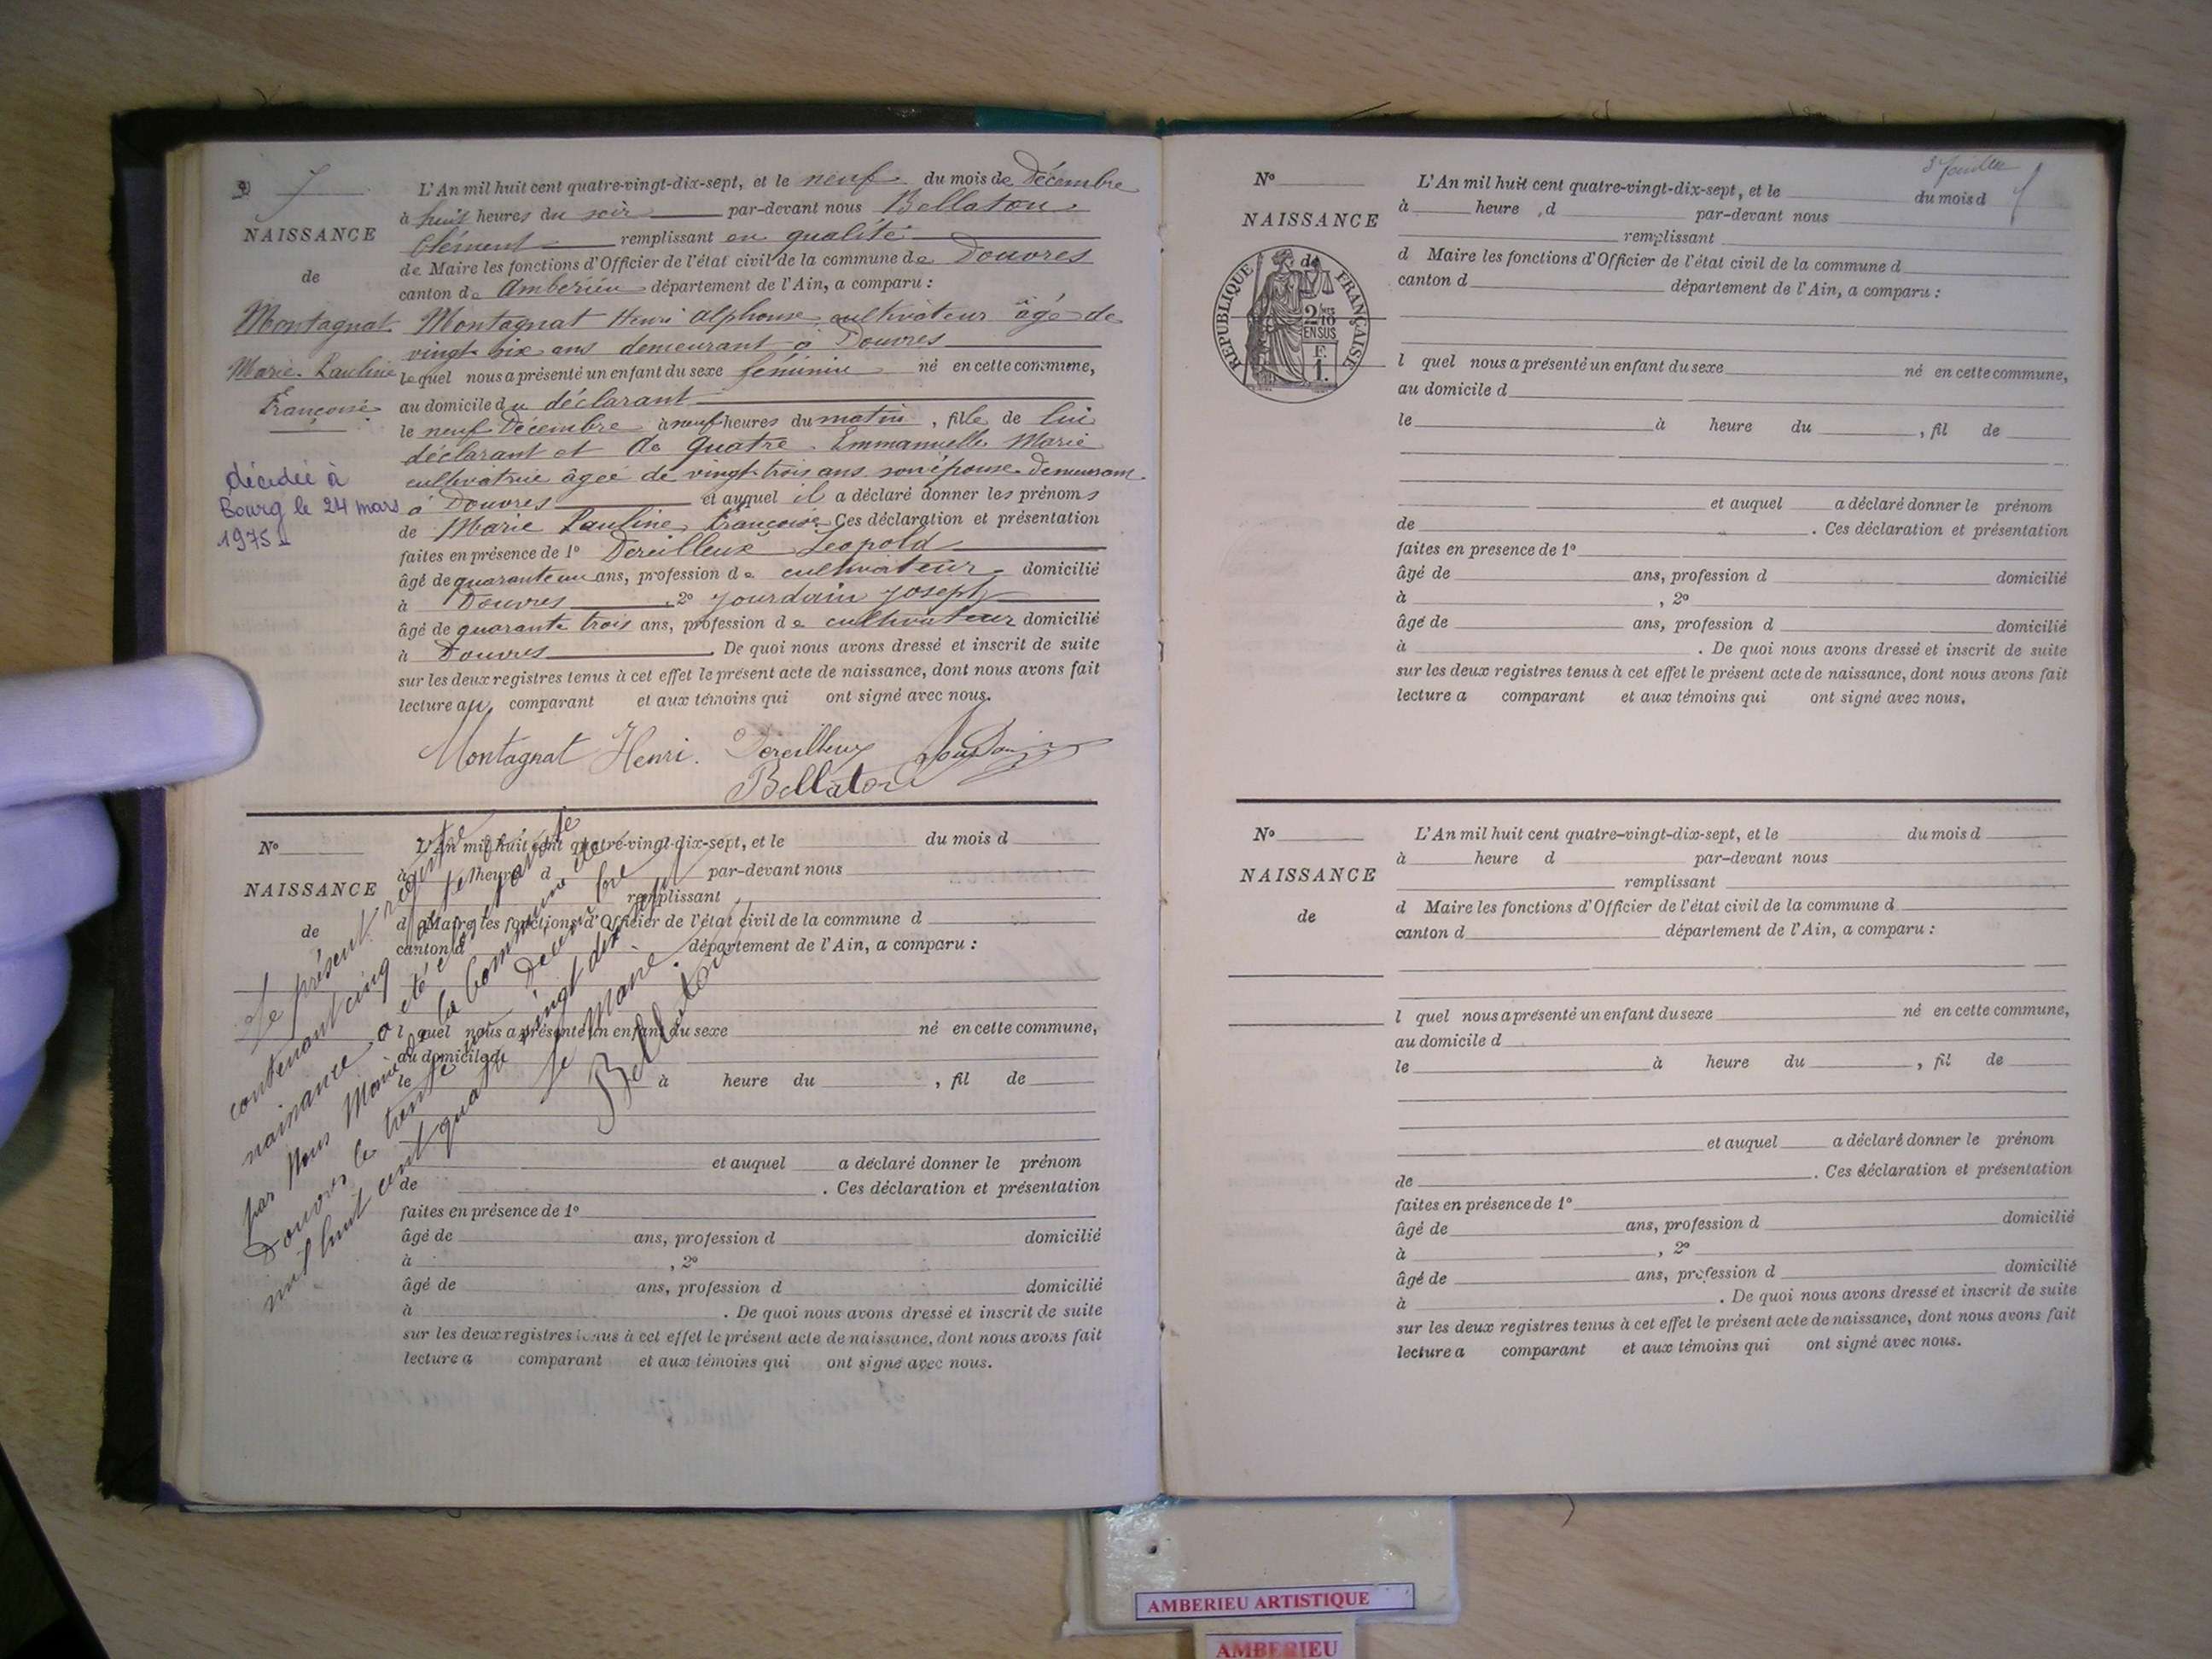 L'An mil huit cent quatre-vingt-dix-sept, et le neuf du mois de Décembre
à huit heures du soir par-devant nous Bellaton
Clément remplissant en qualité
de Maire les fonctions d'Officier de l'état civil de la commune de Douvres
canton de Ambérieu département de l'Ain, a comparu :
Montagnat Henri Alphonse, cultivateur âgé de
vingt six ans demeurant à Douvres
lequel nous a présenté un enfant du sexe féminin né en cette commune,
au domicile du déclarant
le neuf Décembre à neuf heures du matin, fille de lui
déclarant et de Quatre Emmanuelle Marie
cultivatrice âgée de vingt trois ans son épouse demeurant
à Douvres et auquel il a déclaré donner les prénoms
de Marie Pauline Françoise Ces déclaration et présentation
faites en présence de 1º Dereilleux Leopold
âgé de quarante un ans, profession de cultivateur domicilié
à Douvres, 2º Jourdain Joseph
âgé de quarante trois ans, profession de cultivateur domicilié
à Douvres. De quoi nous avons dressé et inscrit de suite
sur les deux registres tenus à cet effet le présent acte de naissance, dont nous avons fait
lecture au comparant et aux témoins qui ont signé avec nous.
Montagnat Henri. Dereilleux Jourdain
Bellaton
7
NAISSANCE
de
Montagnat
Marie Pauline
Françoise
décédée à
Bourg le 24 mars
1975
Nº
NAISSANCE
de
L'An mil huit cent quatre-vingt-dix-sept, et le du mois d
à heure d par-devant nous
remplissant
d Maire les fonctions d'Officier de l'état civil de la commune d
canton d département de l'Ain, a comparu :
l quel nous a présenté un enfant du sexe né en cette commune,
au domicile d
le à heure du , fil de
et auquel a déclaré donner le prénom
de . Ces déclaration et présentation
faites en présence de 1º
âgé de ans, profession d domicilié
à , 2º
âgé de ans, profession d domicilié
à . De quoi nous avons dressé et inscrit de suite
sur les deux registres tenus à cet effet le présent acte de naissance, dont nous avons fait
lecture a comparant et aux témoins qui ont signé avec nous.
Le présent registre
contenant cinq
naissance a été clos et arrêté
par Nous Maire de la Commune de
Douvres le trente
mil huit cent quatre vingt dix sept
Le Maire
Bellaton
3 feuillets
Nº
NAISSANCE
de
RÉPUBLIQUE FRANÇAISE
2/10
EN SUS
F.
1.
L'An mil huit cent quatre-vingt-dix-sept, et le du mois d
à heure , d par-devant nous
remplissant
d Maire les fonctions d'Officier de l'état civil de la commune d
canton d département de l'Ain, a comparu :
l quel nous a présenté un enfant du sexe né en cette commune,
au domicile d
le à heure du , fil de
et auquel a déclaré donner le prénom
de . Ces déclaration et présentation
faites en presence de 1º
âgé de ans, profession d domicilié
à , 2º
âgé de ans, profession d domicilié
à . De quoi nous avons dressé et inscrit de suite
sur les deux registres tenus à cet effet le présent acte de naissance, dont nous avons fait
lecture a comparant et aux témoins qui ont signé avec nous.
Nº
NAISSANCE
de
L'An mil huit cent quatre-vingt-dix-sept, et le du mois d
à heure d par-devant nous
remplissant
d Maire les fonctions d'Officier de l'état civil de la commune d
canton d département de l'Ain, a comparu :
l quel nous a présenté un enfant du sexe né en cette commune,
au domicile d
le à heure du , fil de
et auquel a déclaré donner le prénom
de . Ces déclaration et présentation
faites en présence de 1º
âgé de ans, profession d domicilié
à , 2º
âgé de ans, profession d domicilié
à . De quoi nous avons dressé et inscrit de suite
sur les deux registres tenus à cet effet le présent acte de naissance, dont nous avons fait
lecture a comparant et aux témoins qui ont signé avec nous.
AMBERIEU ARTISTIQUE
AMBERIEU